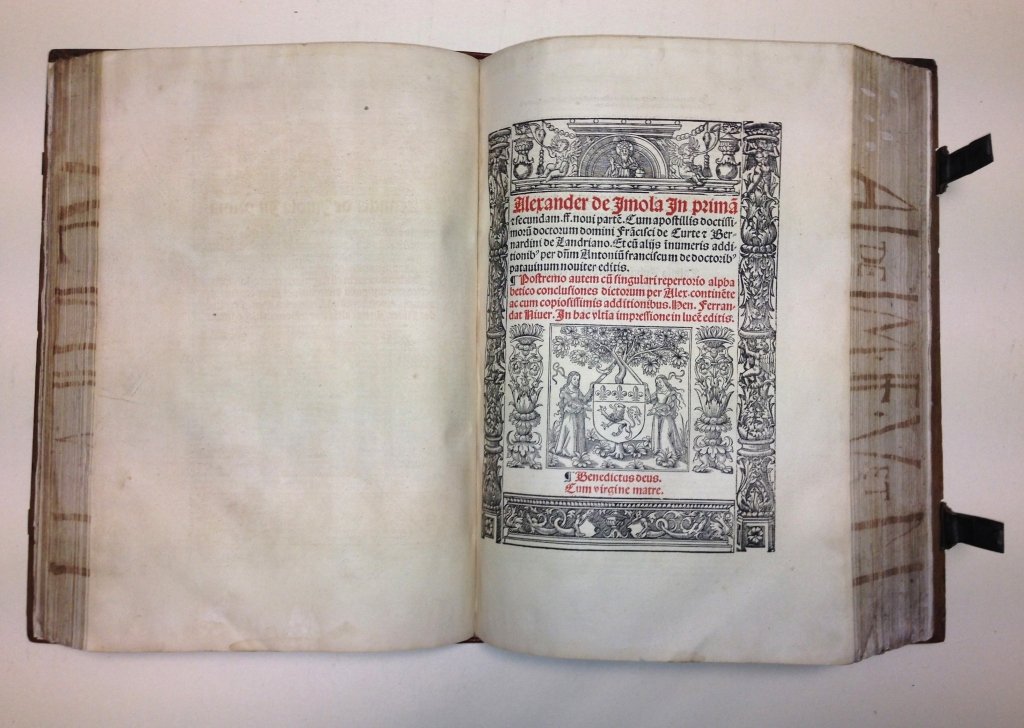 Alexander de Imola In primā
⁊ secundam .ff. noui partē. Cum apostillis doctissi-
morū doctorum domini Frācisci de Curte ⁊ Ber-
nardini de Landriano. Et cū alijs īnumeris addi
tionibꝰ per dn̄m Antoniū franciscum de doctoribꝰ
patauinum nouiter editis.
¶ Postremo autem cū singulari repertorio alpha
betico conclusiones dictorum per Alex. continēte
ac cum copiosissimis additionibus. Hen. Ferran-
dat Niuer. In hac vltīa impressione in lucē editis.
¶ Benedictus deus.
Cum virgine matre.